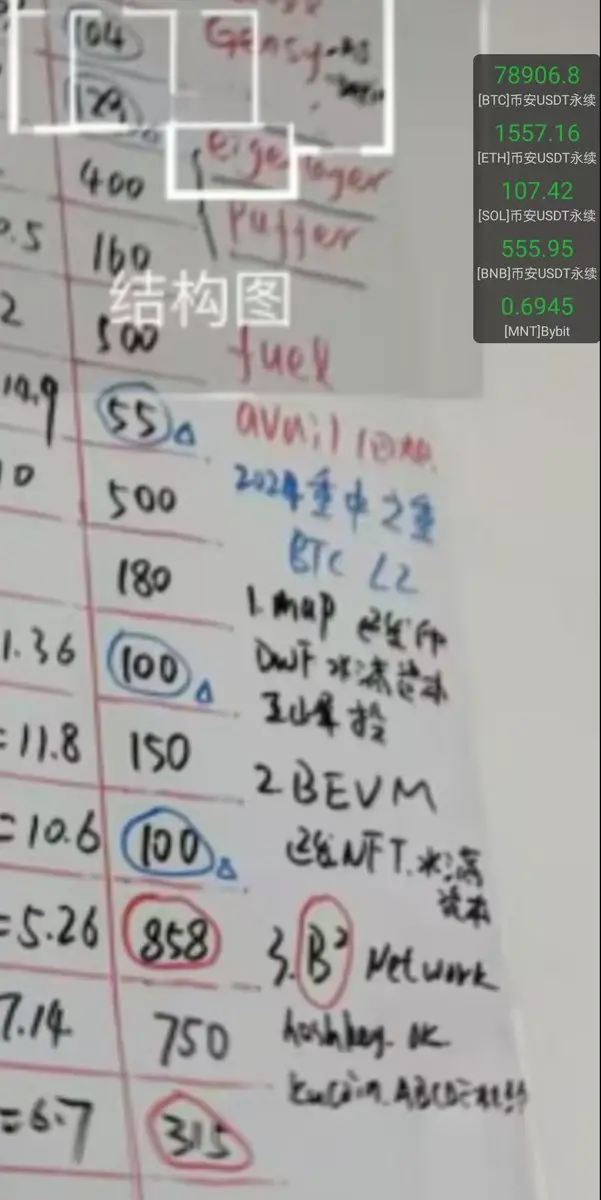 104
Gensy
400
eigenlayer
0.5
160
puffer
结构图
2
500
fuel
14.9
55
avail
10
500
2024重中之重
BTC L2
180
1. map 已发币
1.36
100
DWF 水滴资本
=11.8
150
2 BEVM
=10.6
100
已发NFT.水滴
资本
=5.26
858
3. B² Network
7.14
750
hashkey. OK
kucoin. ABCDE
=6.7
315
78906.8
[BTC]币安USDT永续
1557.16
[ETH]币安USDT永续
107.42
[SOL]币安USDT永续
555.95
[BNB]币安USDT永续
0.6945
[MNT]Bybit